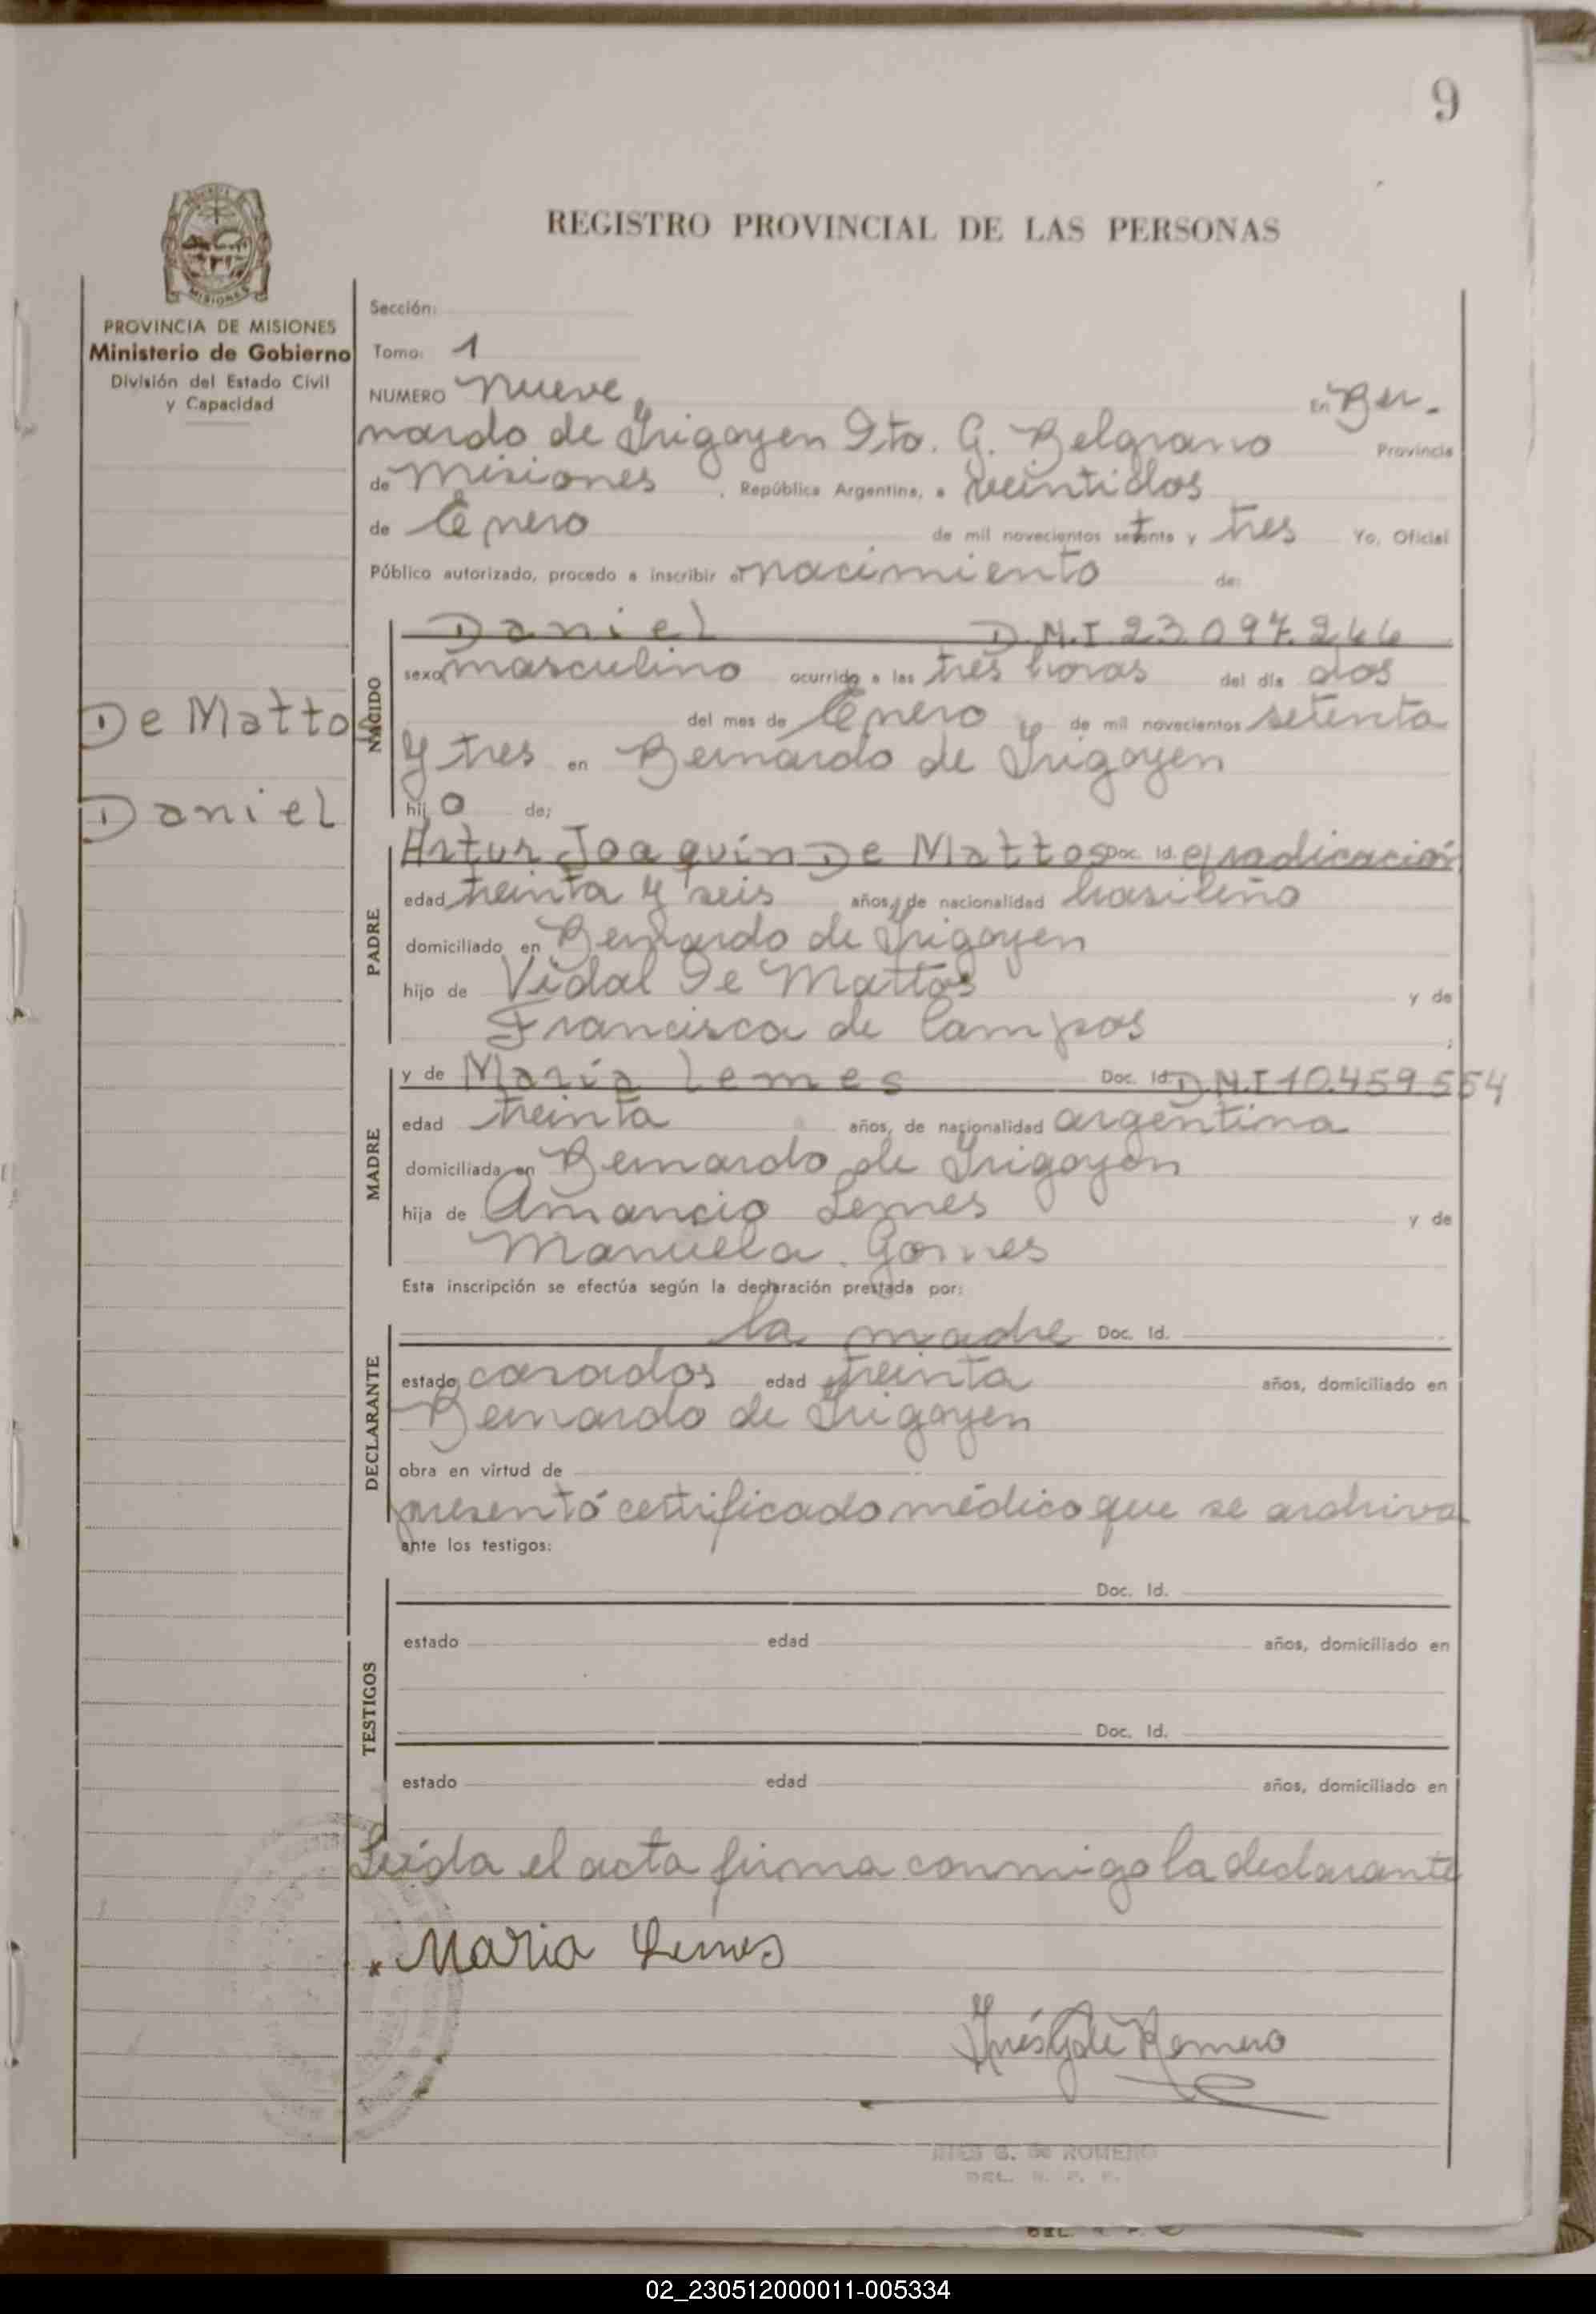 9
REGISTRO PROVINCIAL DE LAS PERSONAS
MISIONES
PROVINCIA DE MISIONES
Ministerio de Gobierno
División del Estado Civil
y Capacidad
De Mattos
Daniel
Sección:
Tomo: 1
NUMERO Nueve, En Ber-
nardo de Irigoyen Dto. G. Belgrano Provincia
de Misiones, República Argentina, a veintidos
de Enero de mil novecientos setenta y tres Yo, Oficial
Público autorizado, procedo a inscribir el nacimiento de:
NACIDO
Daniel D.N.I 23.097.266
sexo masculino ocurrido a las tres horas del día dos
del mes de Enero de mil novecientos setenta
y tres en Bernardo de Irigoyen
hijo de:
PADRE
Artur Joaquín De Mattos Doc. Id. c/radicación
edad treinta y seis años, de nacionalidad brasileño
domiciliado en Bernardo de Irigoyen
hijo de Vidal De Mattos y de
Francisca de Campos;
MADRE
y de María Lemes Doc. Id. D.N.I 10.459.554
edad treinta años, de nacionalidad argentina
domiciliada en Bernardo de Irigoyen
hija de Amancio Lemes y de
Manuela Gomes
Esta inscripción se efectúa según la declaración prestada por:
DECLARANTE
la madre Doc. Id.
estado casados edad treinta años, domiciliado en
Bernardo de Irigoyen
obra en virtud de
presentó certificado médico que se archiva
ante los testigos:
TESTIGOS
Doc. Id.
estado edad años, domiciliado en
Doc. Id.
estado edad años, domiciliado en
Leída el acta firma conmigo la declarante
x Maria Lemes
Inés G de Romero
INES G. de ROMERO
DEL. R. P. P.
02_230512000011-005334